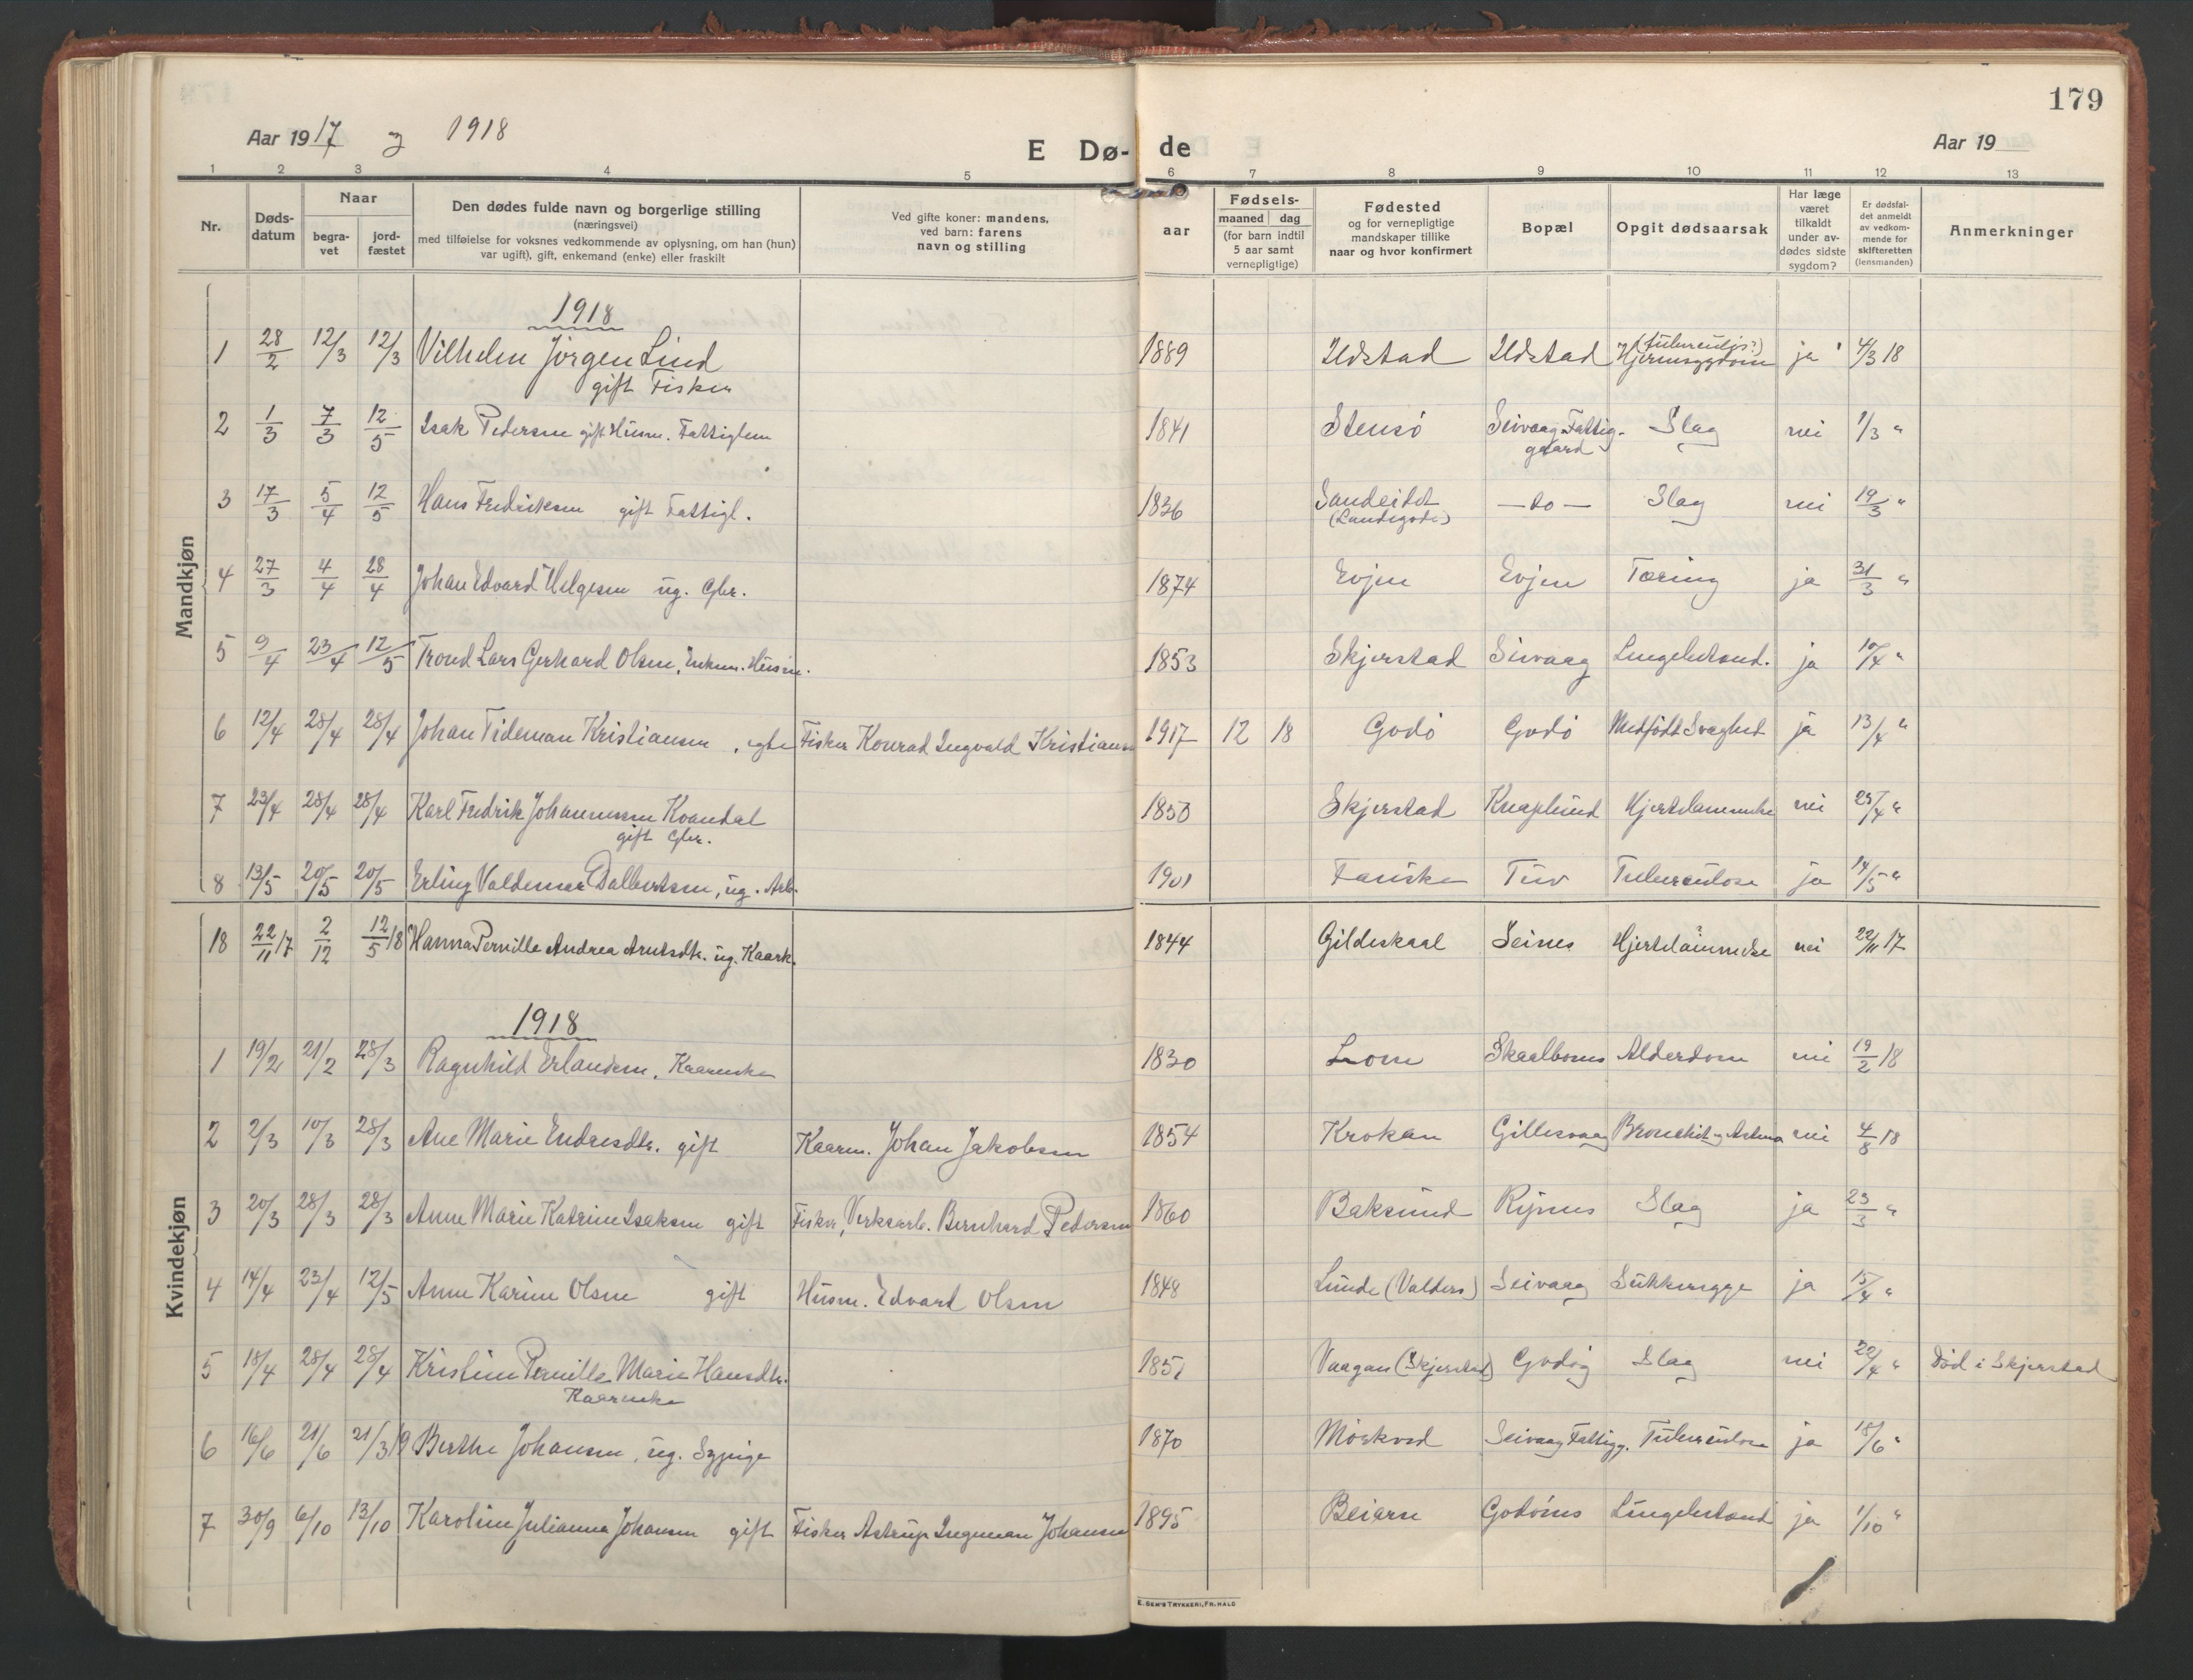 179
Aar 1917 og 1918
E Dø- de
Aar 19
1 2 3 4 5 6 7 8 9 10 11 12 13
Nr.
Døds-
datum
Naar
begra-
vet
jord-
fæstet
Den dødes fulde navn og borgerlige stilling
(næringsvei)
med tilføielse for voksnes vedkommende av oplysning, om han (hun)
var ugift), gift, enkemand (enke) eller fraskilt
Ved gifte koner: mandens,
ved barn: farens
navn og stilling
aar
Fødsels-
maaned dag
(for barn indtil
5 aar samt
vernepligtige)
Fødested
og for vernepligtige
mandskaper tillike
naar og hvor konfirmert
Bopæl
Opgit dødsaarsak
Har læge
været
tilkaldt
under av-
dødes sidste
sygdom?
Er dødsfal-
det anmeldt
av vedkom-
mende for
skifteretten
(lensmanden)
Anmerkninger
Mandkjøn
1918
1 28/2 12/3 12/3 Vilhelm Jørgen Lind 1889 Ildstad Ildstad Hjernesygdom (tuberculos?) ja 4/3 18
gift Fisker
2 1/3 7/3 12/5 Isak Pedersen gift Husm. Fattiglem 1841 Stensø Seivaag Fattig- Slag nei 1/3 "
gaard
3 17/3 5/4 12/5 Hans Fredriksen gift Fattigl. 1836 Sandeidet — do — Slag nei 19/3 "
(Landegode)
4 27/3 4/4 28/4 Johan Edvard Helgesen ug. Gbr. 1874 Evjen Evjen Tæring ja 31/3 "
5 9/4 23/4 12/5 Trond Lars Gerhard Olsen, Enkem. Husm. 1853 Skjerstad Seivaag Lungebetænd. ja 10/4 "
6 12/4 28/4 28/4 Johan Tideman Kristiansen, egte Fisker Konrad Ingvald Kristiansen 1917 12 18 Godø Godø Medfødt Svaghet ja 13/4 "
7 23/4 28/4 28/4 Karl Fredrik Johannessen Kvandal 1850 Skjerstad Knaplund Hjertelammelse nei 25/4 "
gift Gbr.
8 13/5 20/5 20/5 Erling Valdemar Dalbertsen, ug. Arb. 1901 Fauske Tuv Tuberculose ja 14/5 "
Kvindekjøn
18 22/11 17 2/12 12/5 18 Hanna Pernille Andrea Arntsdtr. ug. Kaark. 1844 Gildeskaal Seines Hjertelammelse ? nei 22/11 17
1918
1 19/2 21/2 28/3 Ragnhild Erlandsen, Kaarenke 1830 Skaalbones Alderdom nei 19/2 18
2 2/3 10/3 28/3 Ane Marie Endresdtr. gift Kaarm. Johan Jakobsen 1854 Krokan Gillesvaag Bronchit og Astma nei 4/3 18
3 20/3 28/3 28/3 Anne Marie Katrine Isaksen gift Fisker, Verksarb. Bernhard Pedersen 1860 Baksund Rijnes Slag ja 23/3 "
4 14/4 23/4 12/5 Anne Karine Olsen gift Husm. Edvard Olsen 1848 Lunde (Valders) Seivaag Sukkersyge ja 15/4 "
5 18/4 28/4 28/4 Kristine Pernille Marie Hansdtr. 1851 Vaagan (Skjerstad) Godøy Slag nei 22/4 " Død i Skjerstad
Kaarenke
6 16/6 21/6 21/3 19 Berthe Johansen, ug. Sypige 1870 Mørkved Seivaag Fattigg. Tuberculose ja 18/6 "
7 30/9 6/10 13/10 Karoline Julianna Johansen gift Fisker Astrup Ingeman Johansen 1895 Beiarn Godønes Lungebetænd ja 1/10 "
E. SEM'S TRYKKERI, FR.HALD